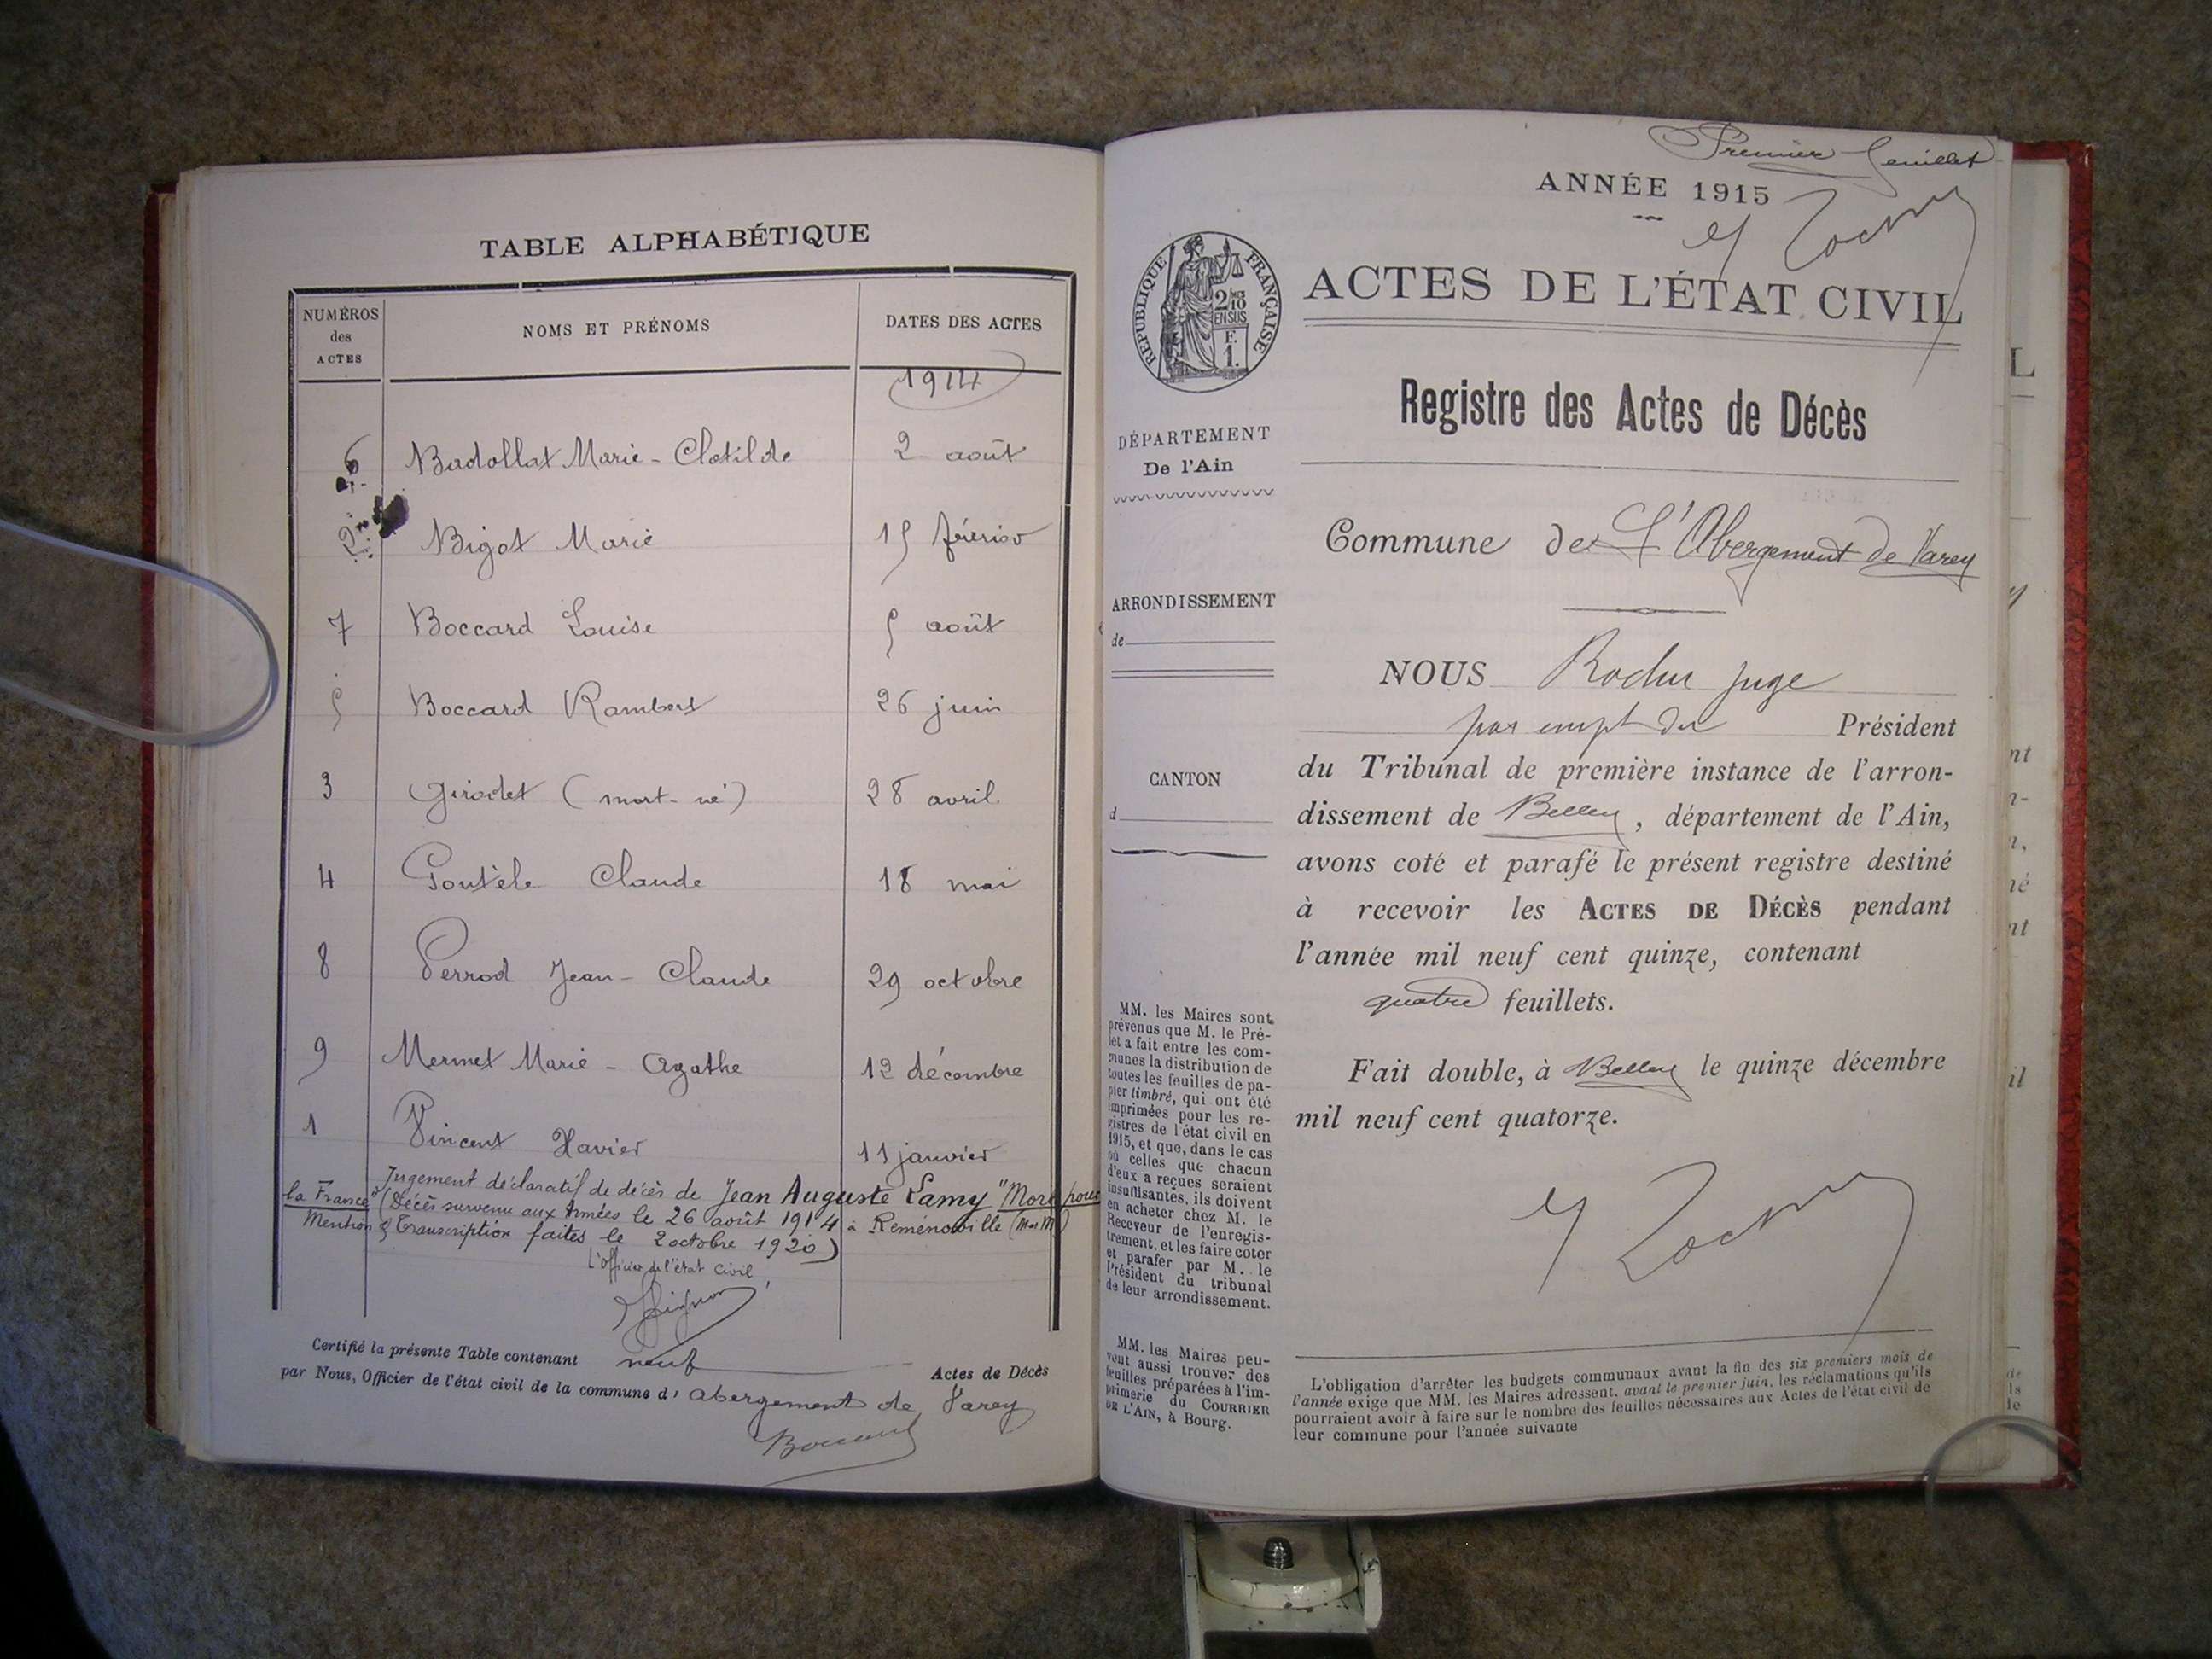 TABLE ALPHABÉTIQUE
NUMÉROS des ACTES
NOMS ET PRÉNOMS
DATES DES ACTES
1914
6 Badollat Marie-Clotilde 2 août
2 Bigot Marie 15 février
7 Boccard Louise 5 août
5 Boccard Rambert 26 juin
3 Girodet (mort-né) 28 avril
4 Claude 18 mai
8 Perrod Jean-Claude 29 octobre
9 Mermet Marie-Agathe 12 décembre
1 Vincent Xavier 11 janvier
Jugement déclaratif de décès de Jean Auguste Lamy "Mort pour
la France" (Décès survenu aux Armées le 26 août 1914 à Reménoville (M et M)
Mention & Transcription faites le 2 octobre 1920)
L'officier de l'état civil,
Certifié la présente Table contenant neuf Actes de Décès
par Nous, Officier de l'état civil de la commune d'Abergement de Varey
Boccard
Premier feuillet
ANNÉE 1915
RÉPUBLIQUE FRANÇAISE
2/10 EN SUS
F. 1.
ACTES DE L'ÉTAT CIVIL
Registre des Actes de Décès
DÉPARTEMENT
De l'Ain
Commune de L'Abergement de Varey
ARRONDISSEMENT
de
NOUS juge
par empt du Président
du Tribunal de première instance de l'arron-
CANTON
d
dissement de Belley, département de l'Ain,
avons coté et parafé le présent registre destiné
à recevoir les ACTES DE DÉCÈS pendant
l'année mil neuf cent quinze, contenant
quatre feuillets.
Fait double, à Belley le quinze décembre
mil neuf cent quatorze.
MM. les Maires sont
prévenus que M. le Pré-
fet a fait entre les com-
munes la distribution de
toutes les feuilles de pa-
pier timbré, qui ont été
imprimées pour les re-
gistres de l'état civil en
1915, et que, dans le cas
où celles que chacun
d'eux a reçues seraient
insuffisantes, ils doivent
en acheter chez M. le
Receveur de l'enregis-
trement, et les faire coter
et parafer par M. le
Président du tribunal
de leur arrondissement.
MM. les Maires peu-
vent aussi trouver des
feuilles préparées à l'im-
primerie du COURRIER
DE L'AIN, à Bourg.
L'obligation d'arrêter les budgets communaux avant la fin des six premiers mois de
l'année exige que MM. les Maires adressent, avant le premier juin, les réclamations qu'ils
pourraient avoir à faire sur le nombre des feuilles nécessaires aux Actes de l'état civil de
leur commune pour l'année suivante